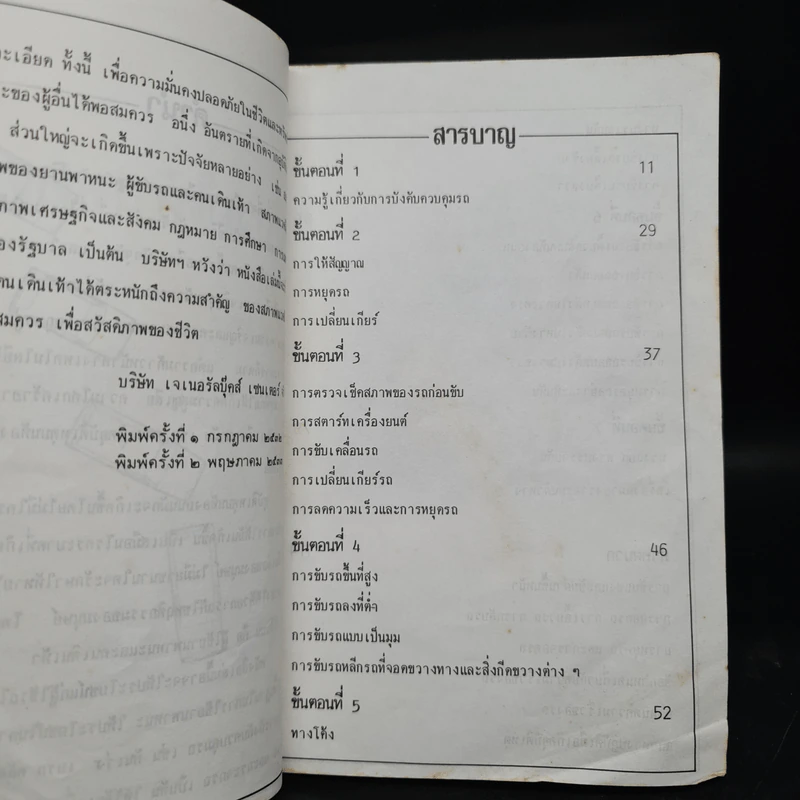 ละเอียด ทั้งนี้ เพื่อความมั่นคงปลอดภัยในชีวิตและ
ของผู้อื่นได้พอสมควร อนึ่ง อันตรายที่เกิดจาก
ส่วนใหญ่จะเกิดขึ้นเพราะปัจจัยหลายอย่าง เช่น
พของยานพาหนะ ผู้ขับรถและคนเดินเท้า
ภาพเศรษฐกิจและสังคม กฎหมาย การศึกษา
องรัฐบาล เป็นต้น บริษัทฯ หวังว่า หนังสือเล่มนี้
คนเดินเท้าได้ตระหนักถึงความสำคัญ ของสภาพ
สมควร เพื่อสวัสดิภาพของชีวิต
บริษัท เจเนอรัลบุ๊คส์ เซนเตอร์
พิมพ์ครั้งที่ ๑ กรกฎาคม
พิมพ์ครั้งที่ ๒ พฤษภาคม
สารบาญ
ขั้นตอนที่ 1 11
ความรู้เกี่ยวกับการบังคับควบคุมรถ
ขั้นตอนที่ 2 29
การให้สัญญาณ
การหยุดรถ
การเปลี่ยนเกียร์
ขั้นตอนที่ 3 37
การตรวจเช็คสภาพของรถก่อนขับ
การสตาร์ทเครื่องยนต์
การขับเคลื่อนรถ
การเปลี่ยนเกียร์รถ
การลดความเร็วและการหยุดรถ
ขั้นตอนที่ 4 46
การขับรถขึ้นที่สูง
การขับรถลงที่ต่ำ
การขับรถแบบเป็นมุม
การขับรถหลีกรถที่จอดขวางทางและสิ่งกีดขวางต่าง ๆ
ขั้นตอนที่ 5 52
ทางโค้ง